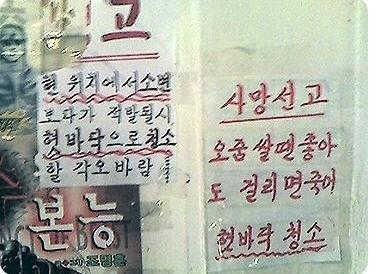 고
현 위치에서소변
보다가 적발될시
혓바닥으로청소
할 각오바람!
본능
사망선고
오줌쌀땐좋아
도 걸리면죽어
혓바닥 청소